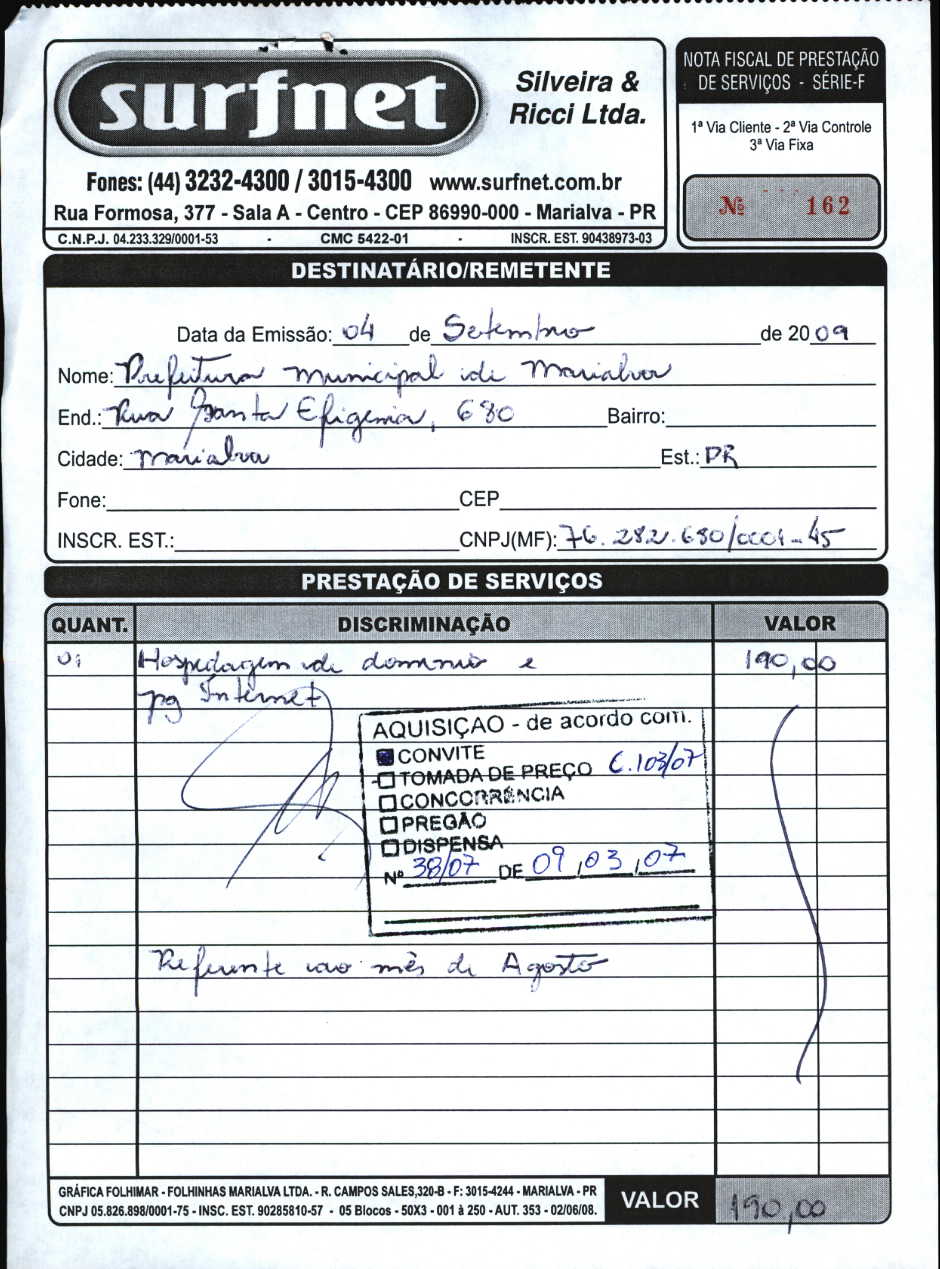 surfnet
Silveira &
Ricci Ltda.
Fones: (44) 3232-4300 / 3015-4300 www.surfnet.com.br
Rua Formosa, 377 - Sala A - Centro - CEP 86990-000 - Marialva - PR
C.N.P.J. 04.233.329/0001-53 - CMC 5422-01 - INSCR. EST. 90438973-03
NOTA FISCAL DE PRESTAÇÃO
DE SERVIÇOS - SÉRIE-F
1ª Via Cliente - 2ª Via Controle
3ª Via Fixa
Nº 162
DESTINATÁRIO/REMETENTE
Data da Emissão: 04 de Setembro de 2009
Nome: Prefeitura Municipal de Marialva
End.: Rua Santa Efigenia, 680 Bairro:
Cidade: Marialva Est.: PR
Fone: CEP
INSCR. EST.: CNPJ(MF): 76.282.680/0001-45
PRESTAÇÃO DE SERVIÇOS
QUANT. DISCRIMINAÇÃO VALOR
01 Hospedagem de dominio e 190,00
pg Internet
AQUISIÇAO - de acordo com.
CONVITE
TOMADA DE PREÇO C.103/07
CONCORRÊNCIA
PREGÃO
DISPENSA
Nº 38/07 DE 09,03,07
Referente ao mês de Agosto
GRÁFICA FOLHIMAR - FOLHINHAS MARIALVA LTDA. - R. CAMPOS SALES,320-B - F: 3015-4244 - MARIALVA - PR
CNPJ 05.826.898/0001-75 - INSC. EST. 90285810-57 - 05 Blocos - 50X3 - 001 à 250 - AUT. 353 - 02/06/08.
VALOR 190,00